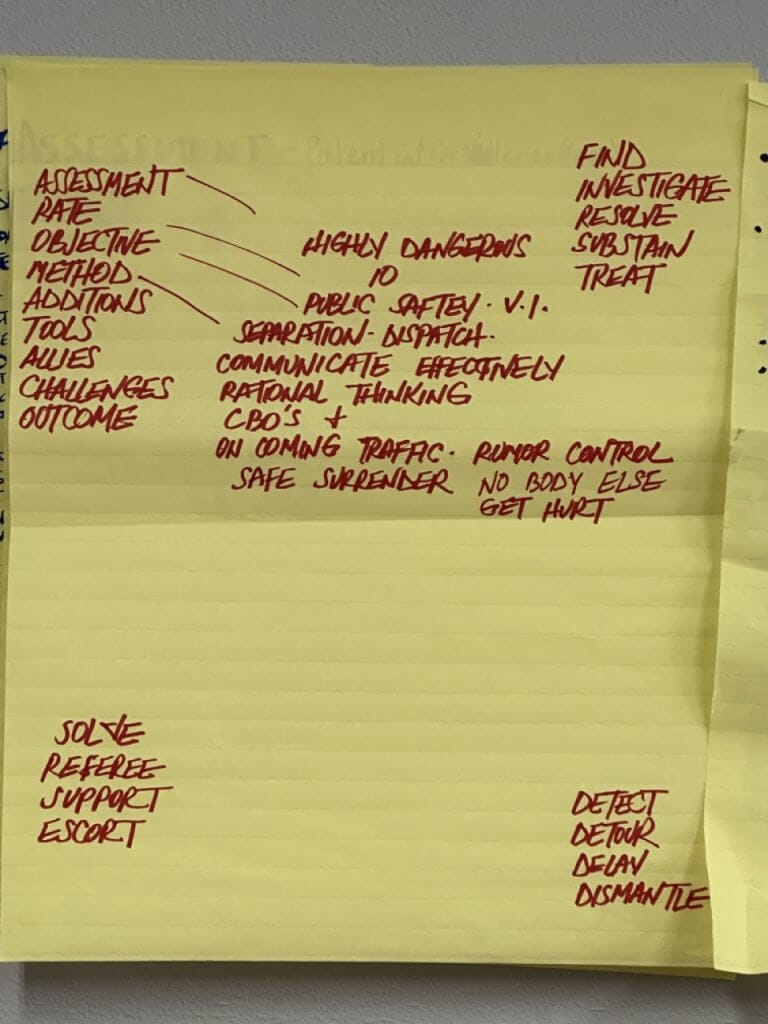 ASSESSMENT
RATE
OBJECTIVE
METHOD
ADDITIONS
TOOLS
ALLIES
CHALLENGES
OUTCOME
HIGHLY DANGEROUS
10
PUBLIC SAFTEY. V.I.
SEPARATION-DISPATCH.
COMMUNICATE EFFECTIVELY
RATIONAL THINKING
CBO'S +
ON COMING TRAFFIC. RUMOR CONTROL
SAFE SURRENDER NO BODY ELSE
GET HURT
FIND
INVESTIGATE
RESOLVE
SUBSTAIN
TREAT
SOLVE
REFEREE
SUPPORT
ESCORT
DETECT
DETOUR
DELAY
DISMANTLE
ASSESSMENT